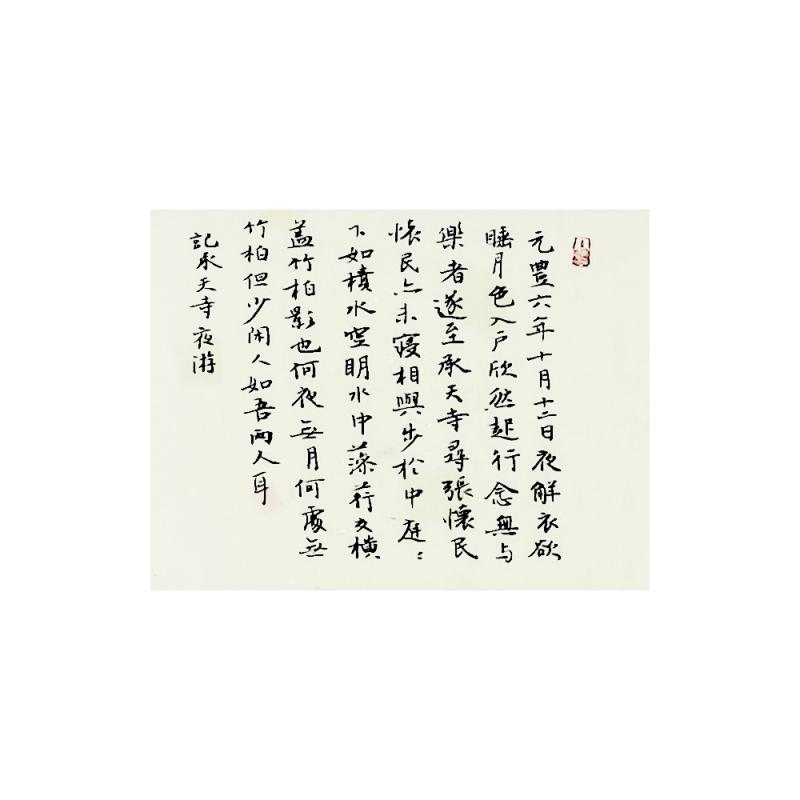 元豐六年十月十二日夜解衣欲
睡月色入戶欣然起行念無与
樂者遂至承天寺尋張懷民
懷民亦未寢相與步於中庭〻
下如積水空明水中藻荇交橫
蓋竹柏影也何夜無月何處無
竹柏但少閑人如吾兩人耳
記承天寺夜游